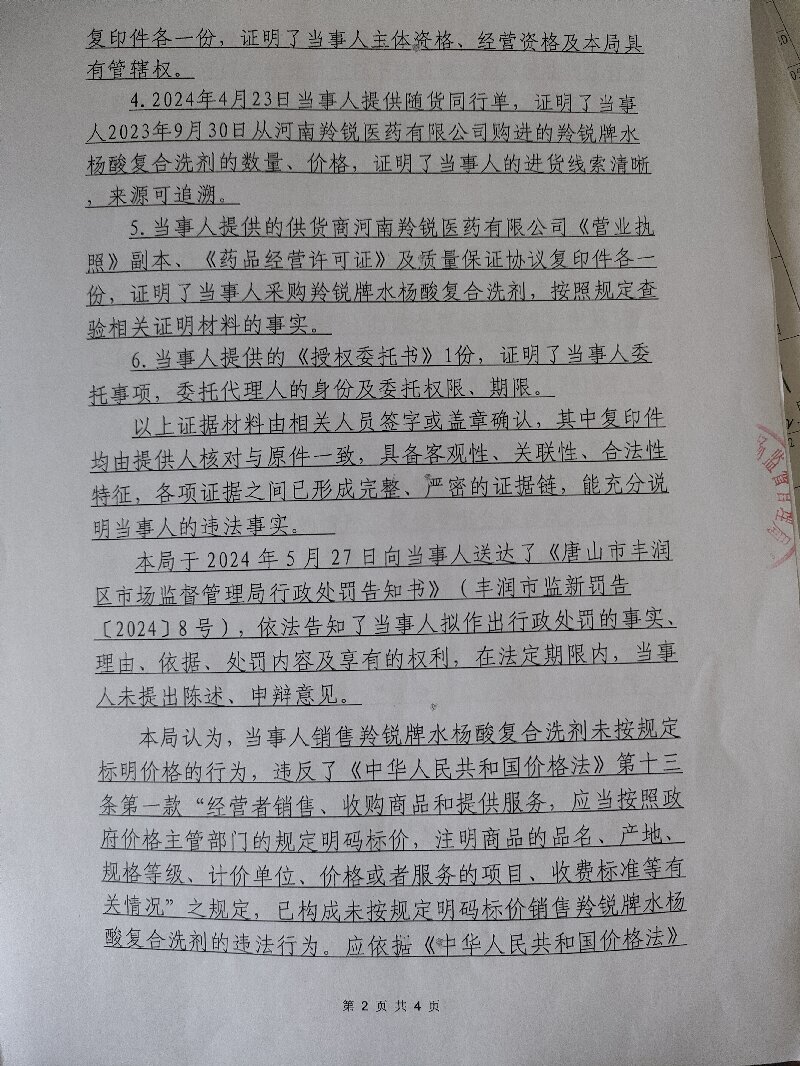 复印件各一份，证明了当事人主体资格、经营资格及本局具
有管辖权。
4.2024年4月23日当事人提供随货同行单，证明了当事
人2023年9月30日从河南羚锐医药有限公司购进的羚锐牌水
杨酸复合洗剂的数量、价格，证明了当事人的进货线索清晰
，来源可追溯。
5.当事人提供的供货商河南羚锐医药有限公司《营业执
照》副本、《药品经营许可证》及质量保证协议复印件各一
份，证明了当事人采购羚锐牌水杨酸复合洗剂，按照规定查
验相关证明材料的事实。
6.当事人提供的《授权委托书》1份，证明了当事人委
托事项，委托代理人的身份及委托权限、期限。
以上证据材料由相关人员签字或盖章确认，其中复印件
均由提供人核对与原件一致，具备客观性、关联性、合法性
特征，各项证据之间已形成完整、严密的证据链，能充分说
明当事人的违法事实。
本局于2024年5月27日向当事人送达了《唐山市丰润
区市场监督管理局行政处罚告知书》（丰润市监新罚告
〔2024〕8号），依法告知了当事人拟作出行政处罚的事实、
理由、依据、处罚内容及享有的权利，在法定期限内，当事
人未提出陈述、申辩意见。
本局认为，当事人销售羚锐牌水杨酸复合洗剂未按规定
标明价格的行为，违反了《中华人民共和国价格法》第十三
条第一款“经营者销售、收购商品和提供服务，应当按照政
府价格主管部门的规定明码标价，注明商品的品名、产地、
规格等级、计价单位、价格或者服务的项目、收费标准等有
关情况”之规定，已构成未按规定明码标价销售羚锐牌水杨
酸复合洗剂的违法行为。应依据《中华人民共和国价格法》
第 2 页 共 4 页